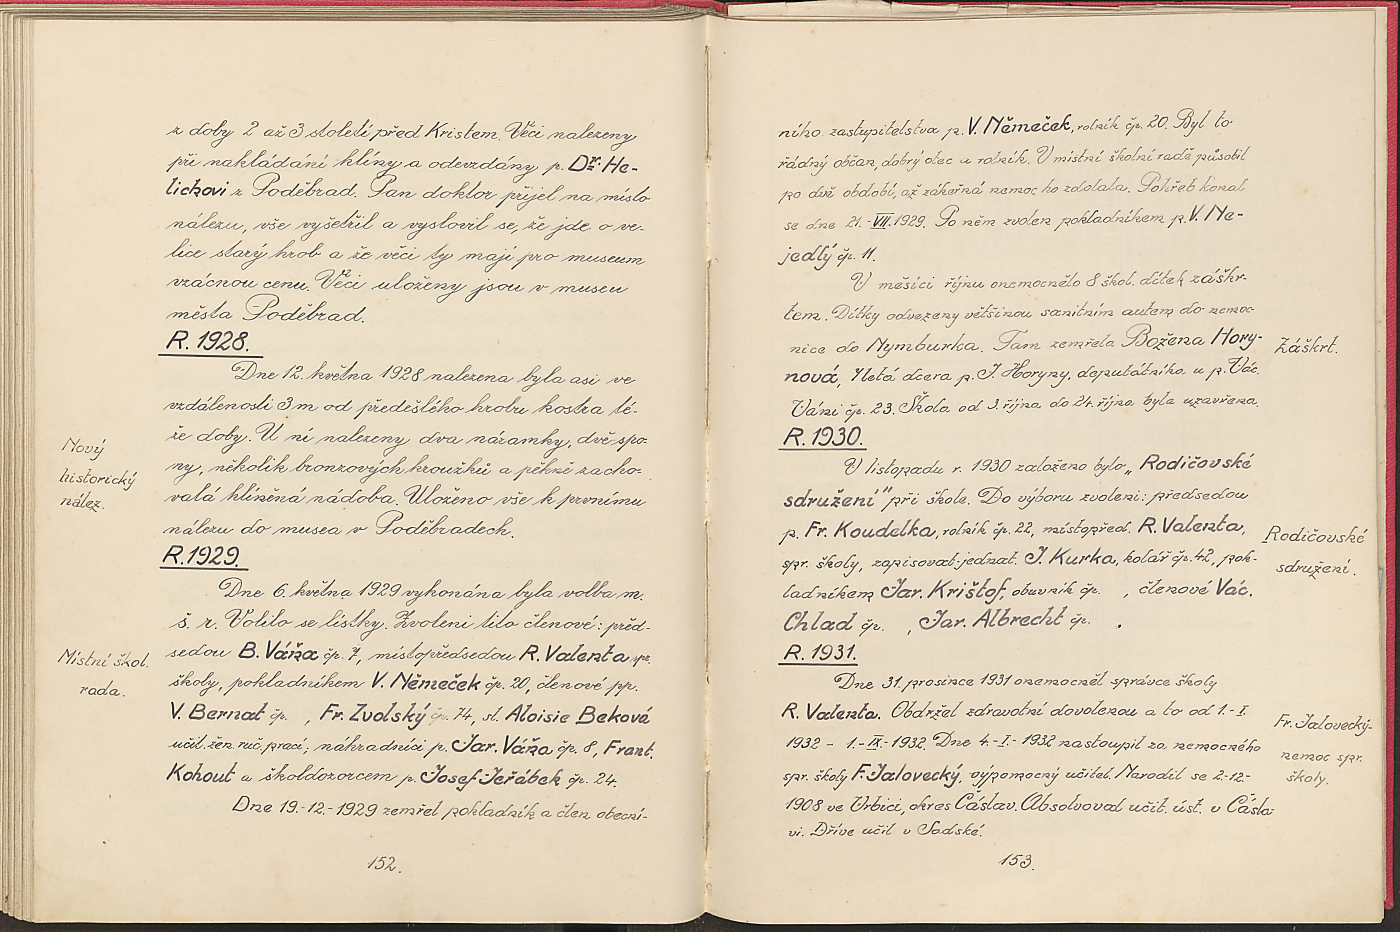 z doby 2 až 3 století před Kristem. Věci nalezeny
při nakládání hlíny a odevzdány p. Dr. He-
lichovi z Poděbrad. Pan doktor přijel na místo
nálezu, vše vyšetřil a vyslovil se, že jde o ve-
lice starý hrob a že věci ty mají pro museum
vzácnou cenu. Věci uloženy jsou v museu
města Poděbrad.
R. 1928.
Dne 12. května 1928 nalezena byla asi ve
vzdálenosti 3 m od předešlého hrobu kostra té-
že doby. U ní nalezeny dva náramky, dvě spo-
ny, několik bronzových kroužků a pěkně zacho-
valá hliněná nádoba. Uloženo vše k prvnímu
nálezu do musea v Poděbradech.
Nový
historický
nález.
R. 1929.
Dne 6. května 1929 vykonána byla volba m.
š. r. Volilo se lístky. Zvoleni tito členové: před-
sedou B. Váňa čp. 7, místopředsedou R. Valenta spr.
školy, pokladníkem V. Němeček čp. 20, členové pp.
V. Bernat čp. , Fr. Zvolský čp. 74, sl. Aloisie Beková
učit. žen. ruč. prací; náhradníci p. Jar. Váňa čp. 8, Frant.
Kohout a školdozorcem p. Josef Jeřábek čp. 24.
Místní škol.
rada.
Dne 19.-12.-1929 zemřel pokladník a člen obecní-
152.
ního zastupitelstva p. V. Němeček, rolník čp. 20. Byl to
řádný občan, dobrý otec a rolník. V místní školní radě působil
po dvě období, až zákeřná nemoc ho zdolala. Pohřeb konal
se dne 21.-VII.1929. Po něm zvolen pokladníkem p. V. Ne-
jedlý čp. 11.
V měsíci říjnu onemocnělo 8 škol. dítek záškr-
tem. Dítky odvezeny většinou sanitním autem do nemoc-
nice do Nymburka. Tam zemřela Božena Hory-
nová, 7letá dcera p. J. Horyny, deputátníka u p. Vác.
Váni čp. 23. Škola od 3. října do 24. října byla uzavřena.
Záškrt.
R. 1930.
V listopadu r. 1930 založeno bylo „Rodičovské
sdružení" při škole. Do výboru zvoleni: předsedou
p. Fr. Koudelka, rolník čp. 22, místopřed. R. Valenta,
spr. školy, zapisovat.-jednat. J. Kurka, kolář čp. 42, pok-
ladníkem Jar. Krištof, obuvník čp. , členové Vác.
Chlad čp. , Jar. Albrecht čp. .
Rodičovské
sdružení.
R. 1931.
Dne 31. prosince 1931 onemocněl správce školy
R. Valenta. Obdržel zdravotní dovolenou a to od 1.-I.
1932 - 1.-IX.-1932. Dne 4.-I.-1932 nastoupil za nemocného
spr. školy F. Jalovecký, výpomocný učitel. Narodil se 2.-12.-
1908 ve Vrbici, okres Čáslav. Absolvoval učit. úst. v Čásla-
vi. Dříve učil v Sadské.
Fr. Jalovecký-
nemoc spr.
školy.
153.